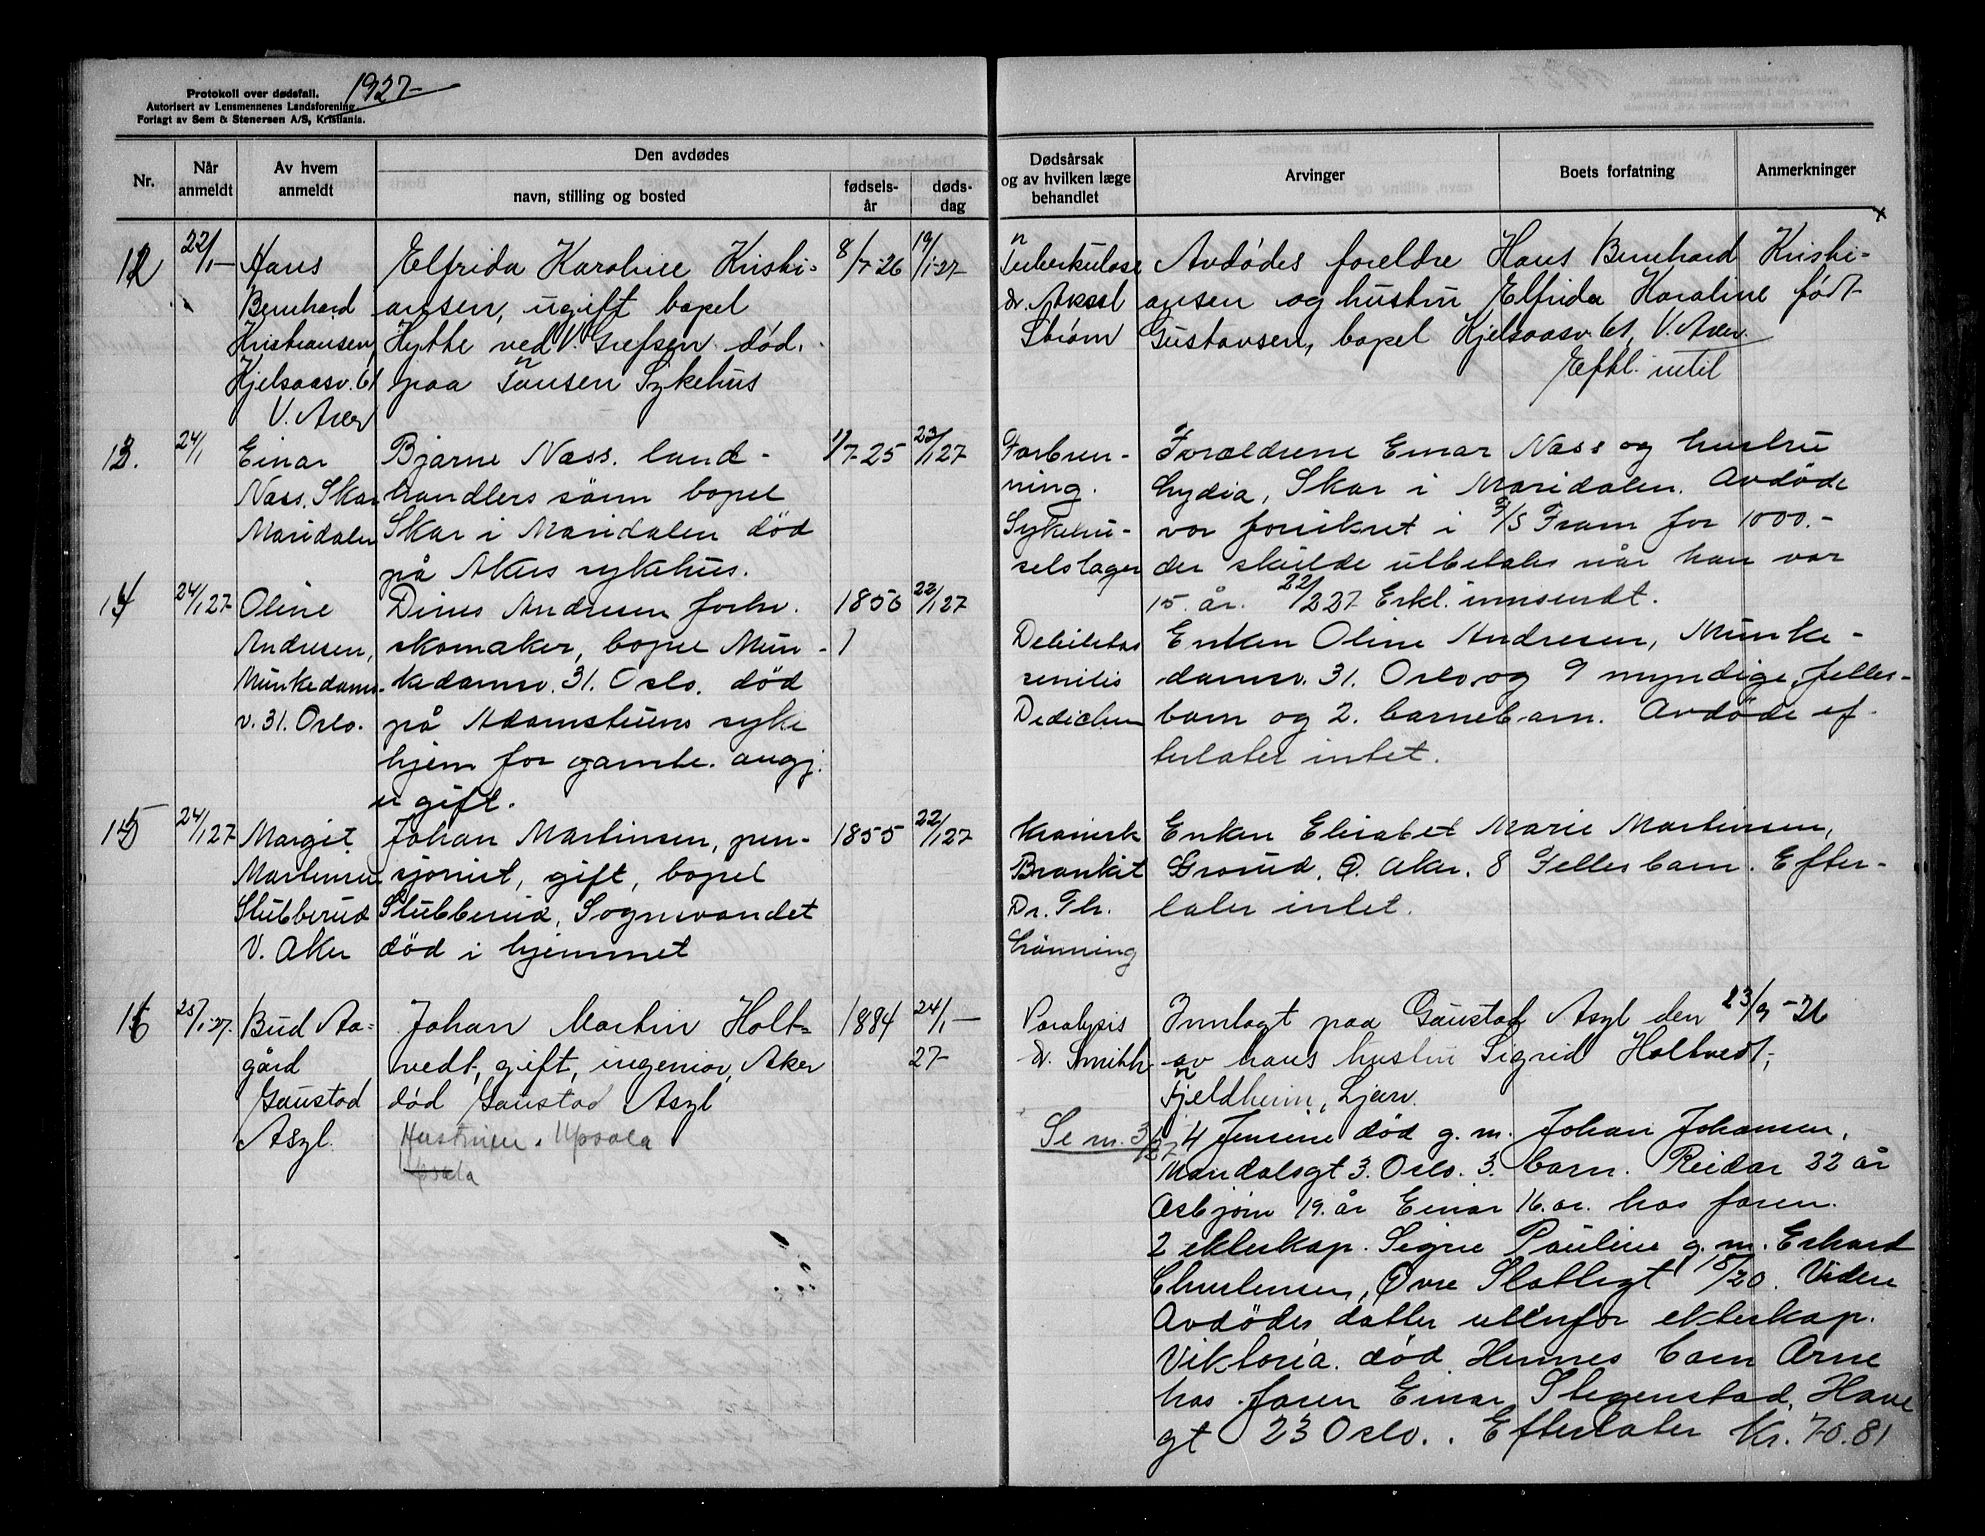 Protokoll over dødsfall.
Autorisert av Lensmennenes Landsforening.
Forlagt av Sem & Stenersen A/S, Kristiania.
1927-
Nr.
Når anmeldt
Av hvem anmeldt
Den avdødes
navn, stilling og bosted
fødsels-år
døds-dag
Dødsårsak og av hvilken læge behandlet
Arvinger
Boets forfatning
Anmerkninger
12
22/1-
Hans
Bernhard
Kristiansen,
Hjelsaasv. 61
V. Aker
Elfrida Karoline Kristi-
ansen, ugift bopel
Hytte ved V. Grefsen død
paa Tonsen Sykehus
8/7-26
19/1-27-
Tuberkulose
dr. Aksel
Strøm
Avdødes foreldre Hans Bernhard Kristi-
ansen og hustru Elfrida Karoline født
Gustavsen, bopel Kjelsaasv. 61, V. Aker
Eftl. intil
13.
24/1
Einar
Næss. Skar
Maridalen
Bjarne Næss. land-
handlers sønn bopel
Skar i Maridalen død
på Akers sykehus.
1/7-25
23/1 27
Forbren-
ning.
Sykehu-
selslager
Foreldrene Einar Næss og hustru
Lydia, Skar i Maridalen. Avdøde
var forsikret i A/S Fram for 1000.-
der skulde utbetales når han var
15. år. 22/2 27 Erkl. innsendt.
14
24/1 27-
Oline
Andresen,
Munkedams-
v. 31. Oslo.
Dines Andresen forhv.
skomaker, bopel Mun-
kedamsv. 31. Oslo. død
på Adamstuens syke
hjem for gamle. angj.
gift.
1850
22/1 27
Debilitas
senilis
Dedichen
Enken Oline Andresen, Munke-
damsv. 31. Oslo og 9 myndige felles-
barn og 2. barnebarn. Avdøde ef-
terlater intet.
15
24/1 27-
Margit
Martinsen
Slubberud
V. Aker
Johan Martinsen, pen-
sjonist, gift, bopel
Slubberud, Sognsvandet
død i hjemmet
1855
22/1 27
Kronisk
Bronkit
Dr. Th.
Grønning
Enken Elisabet Marie Martinsen,
Grorud, Ø. Aker. 8 Fellesbarn. Efter-
later intet.
16
25/1-27-
Bud Aa-
gård
Gaustad
Asyl.
Johan Martin Holt-
vedt, gift, ingeniør, Aker
død Gaustad Asyl
Hustruen. Upsala
Upsala
1884
24/1-
27-
Paralysis
dr. Smith
Innlagt paa Gaustad Asyl den 23/9-26
av hans hustru Sigrid Holtvedt,
Fjeldheim, Ljan.
Se m. 3/27
4 Jensine død g. m. Johan Johansen,
Mandalsgt 3. Oslo. 3. barn. Reidar 22 år
Asbjørn 19. år Einar 16. år. hos faren.
2 ekteskap. Signe Pauline g. m. Erhard
Christensen, Øvre Slottsgt 18/20. Videre
Avdødes datter utenfor ekteskap.
Viktoria. død Hennes barn Arne
hos faren Einar Stegenstad, Have
gt 23 Oslo. . Efterlater Kr. 70.81